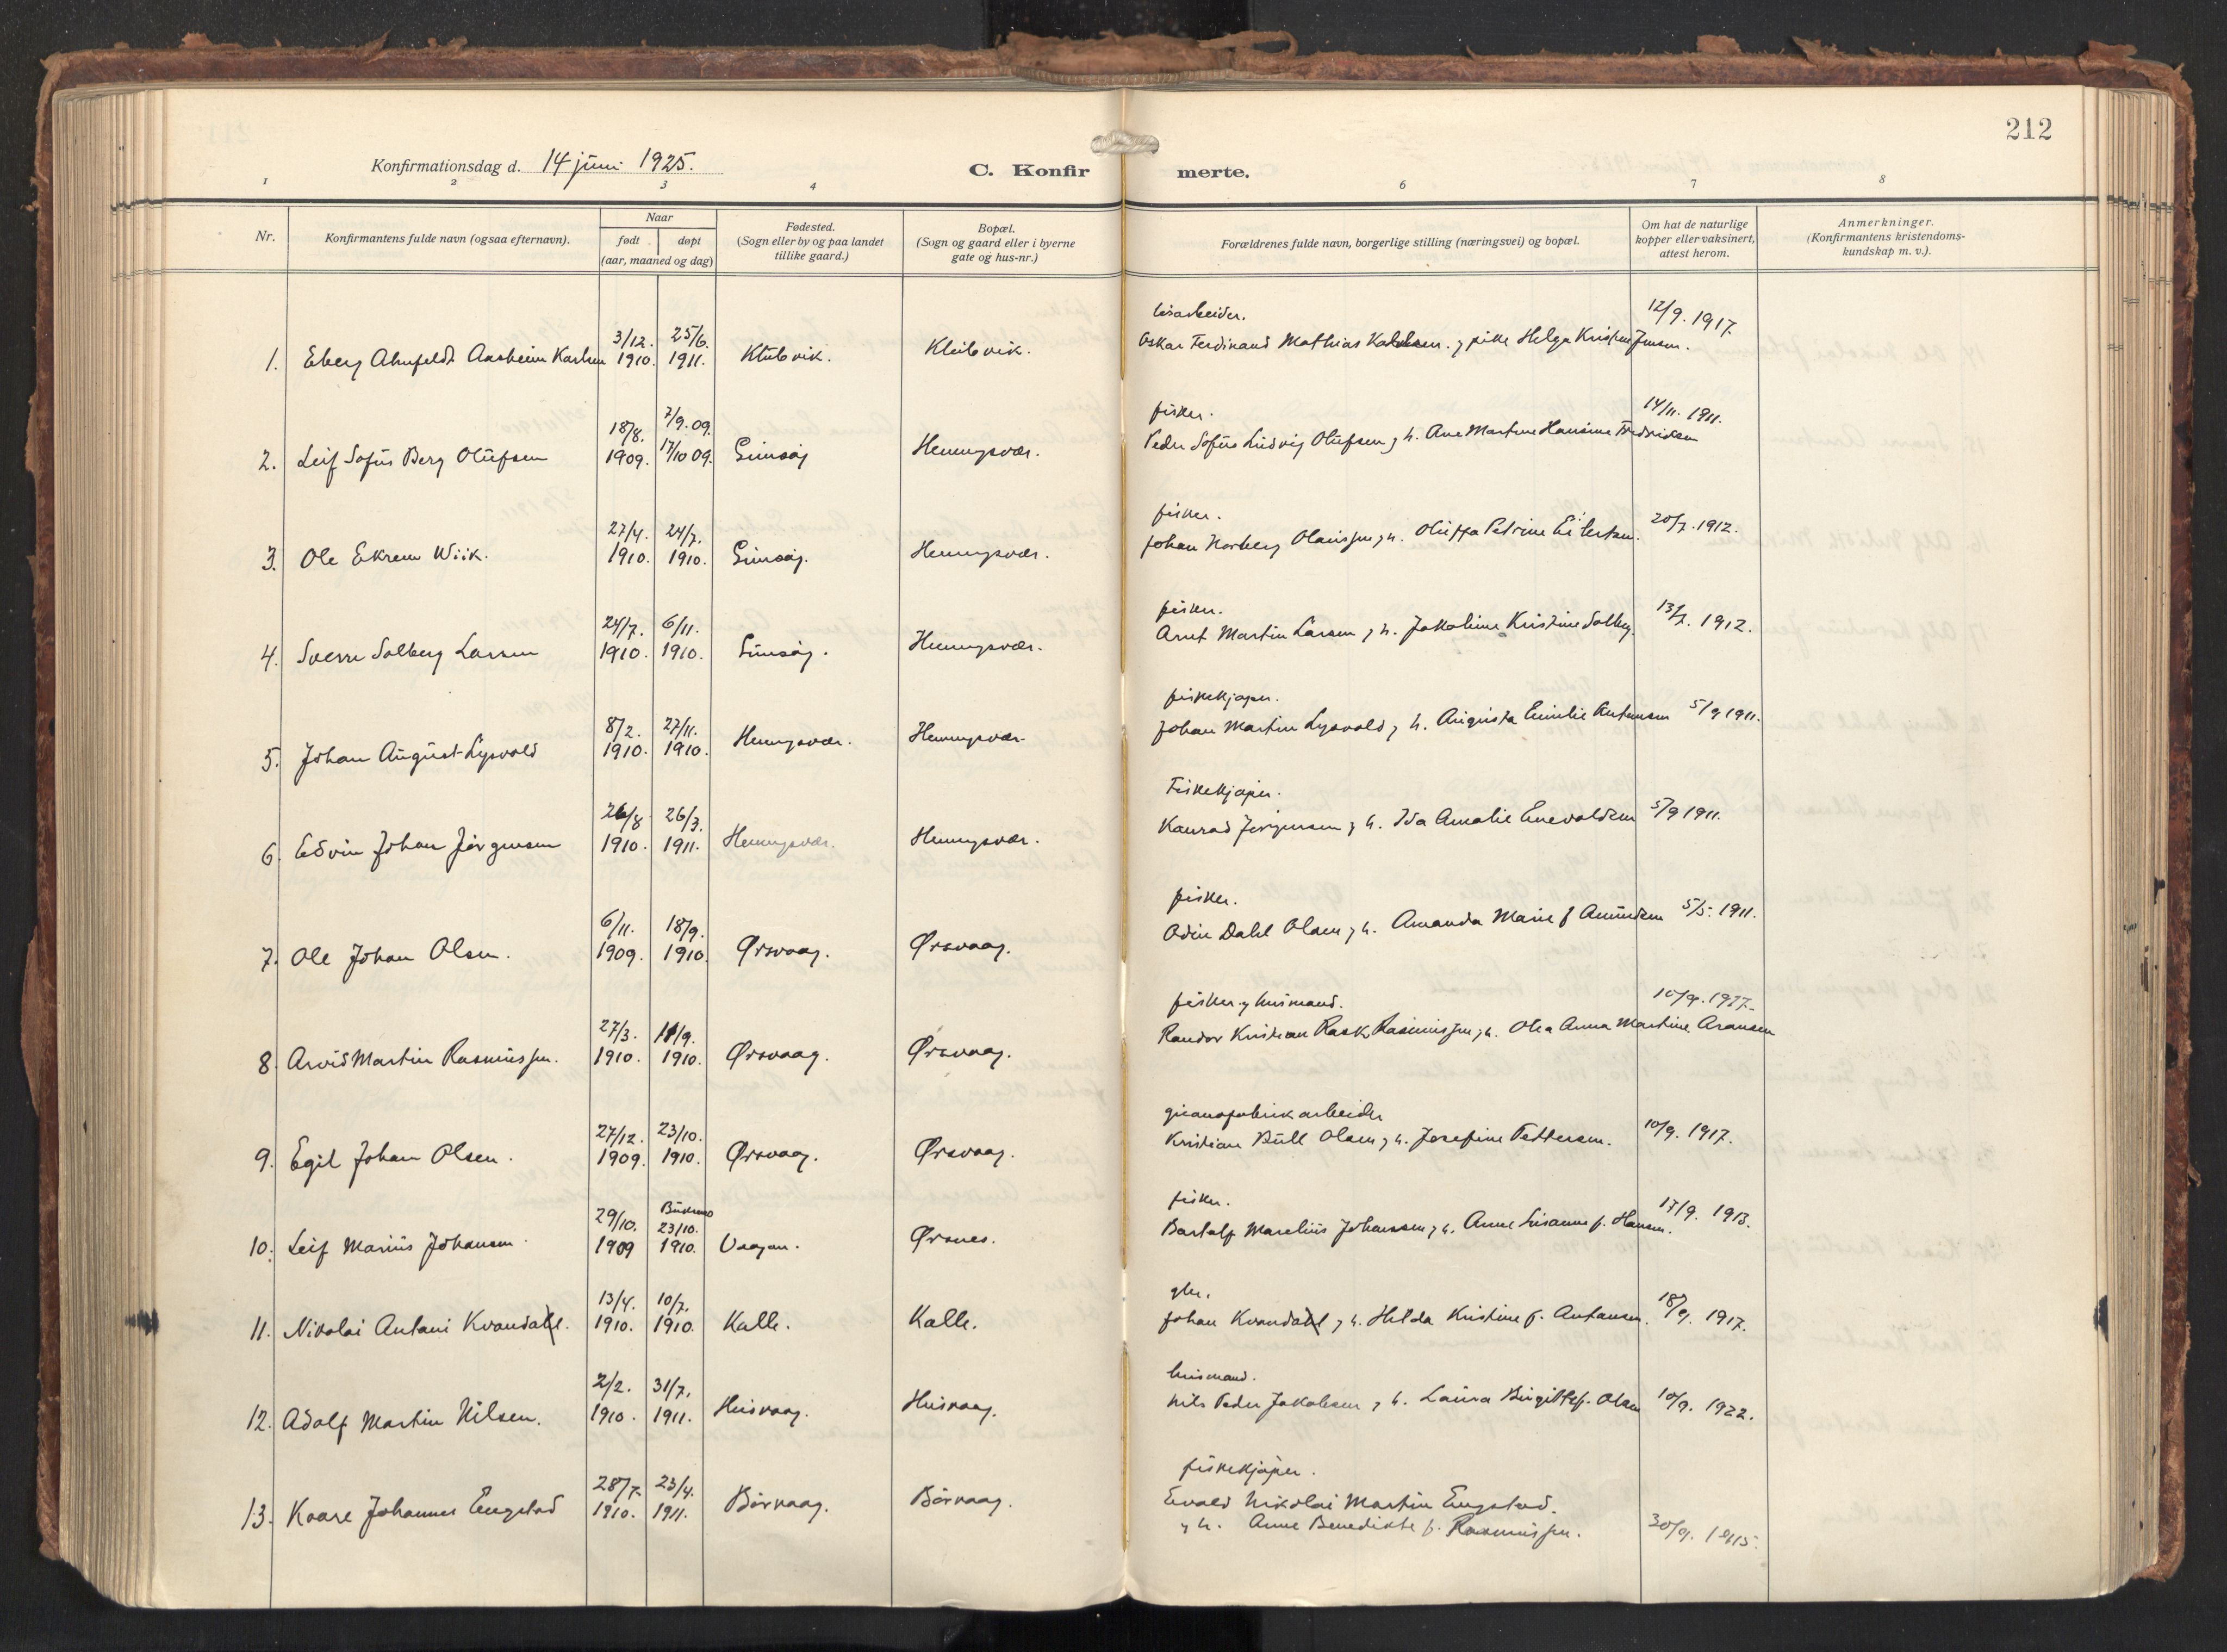 212
Konfirmationsdag d. 14 juni 1925.
C. Konfirmerte.
1 2 3 4 6 7 8
Nr.
Konfirmantens fulde navn (ogsaa efternavn).
Naar
født døpt
(aar, maaned og dag)
Fødested.
(Sogn eller by og paa landet
tillike gaard.)
Bopæl.
(Sogn og gaard eller i byerne
gate og hus-nr.)
Forældrenes fulde navn, borgerlige stilling (næringsvei) og bopæl.
Om hat de naturlige
kopper eller vaksinert,
attest herom.
Anmerkninger.
(Konfirmantens kristendoms-
kundskap m. v.).
3/12. 25/6. 12/9. 1917.
1. Aasheim Karlsen 1910. 1911. Oskar Ferdinand Mathias pike Helga Kristine Jensen.
fisker.
18/8. 7/9. 09. 14/11. 1911.
2. Leif Sofus Berg Olufsen 1909. 17/10 09. Gimsøy Henningsvær. Peder Sofus Ludvig Olufsen og h. Ane Martine Hansine Fredriksen
fisker.
27/4. 24/7. 20/7. 1912.
3. Ole Ekrem Wiik. 1910. 1910. Gimsøy. Henningsvær. Johan Norberg Olaussen og h. Oluffa Petrine Eilertsen.
fisker.
24/7. 6/11. 13/7. 1912.
4. Sverre Solberg Larsen 1910. 1910. Gimsøy. Henningsvær. Arnt Martin Larsen og h. Jakobine Kristine Solberg.
fiskekjøper.
8/2. 27/11. 5/9 1911.
5. Johan August Lysvold 1910. 1910. Henningsvær. Henningsvær Johan Martin Lysvold og h. Augusta Emilie Antonsen
Fiskekjøper.
26/8 26/3. 5/9 1911.
6. Edvin Johan Jørgensen 1910. 1911. Henningsvær. Henningsvær. Konrad Jørgensen og h. Ida Amalie Enevoldsen
fisker.
6/11. 18/9. 5/5. 1911.
7. Ole Johan Olsen. 1909. 1910. Ørsvaag. Ørsvaag. Odin Dahl Olsen og h. Amanda Marie f Amundsen
fisker og husmand.
27/3. 11/9. 10/9. 1917.
8. Arvid Martin Rasmussen. 1910. 1910. Ørsvaag. Ørsvaag. Kristian Rask Rasmussen og h. Olea Anna Martine Aronsen
guanofabrikarbeider
27/12. 23/10. 10/9. 1917.
9. Egil Johan Olsen. 1909. 1910. Ørsvaag. Ørsvaag. Kristian Bull Olsen og h. Josefine Pettersen.
fisker.
29/10. 23/10. 17/9. 1913.
10. Leif Marius Johansen. 1909 1910. Vaagan. Ørsnes. Bartolf Marelius Johanssen og h. Anne Susanne f. Hansen.
gbr.
13/4. 10/7. 18/9. 1917.
11. Nikolai Antoni Kvandahl. 1910. 1910. Kalle. Kalle. Johan Kvandahl og h. Hilda Kristine f. Antonsen.
husmand.
2/2. 31/7. 10/9. 1922.
12. Adolf Martin Nilsen. 1910. 1911. Husvaag. Husvaag. Nils Peder Jakobsen og h. Laura Birgitte f. Olsen
fiskekjøper.
28/7. 23/4.
13. Kaare Johannes Engstad 1910. 1911. Børvaag. Børvaag. Evald Nikolai Martin Engstad.
og h. Anne Benedikte f. Rasmussen. 30/9. 1915.